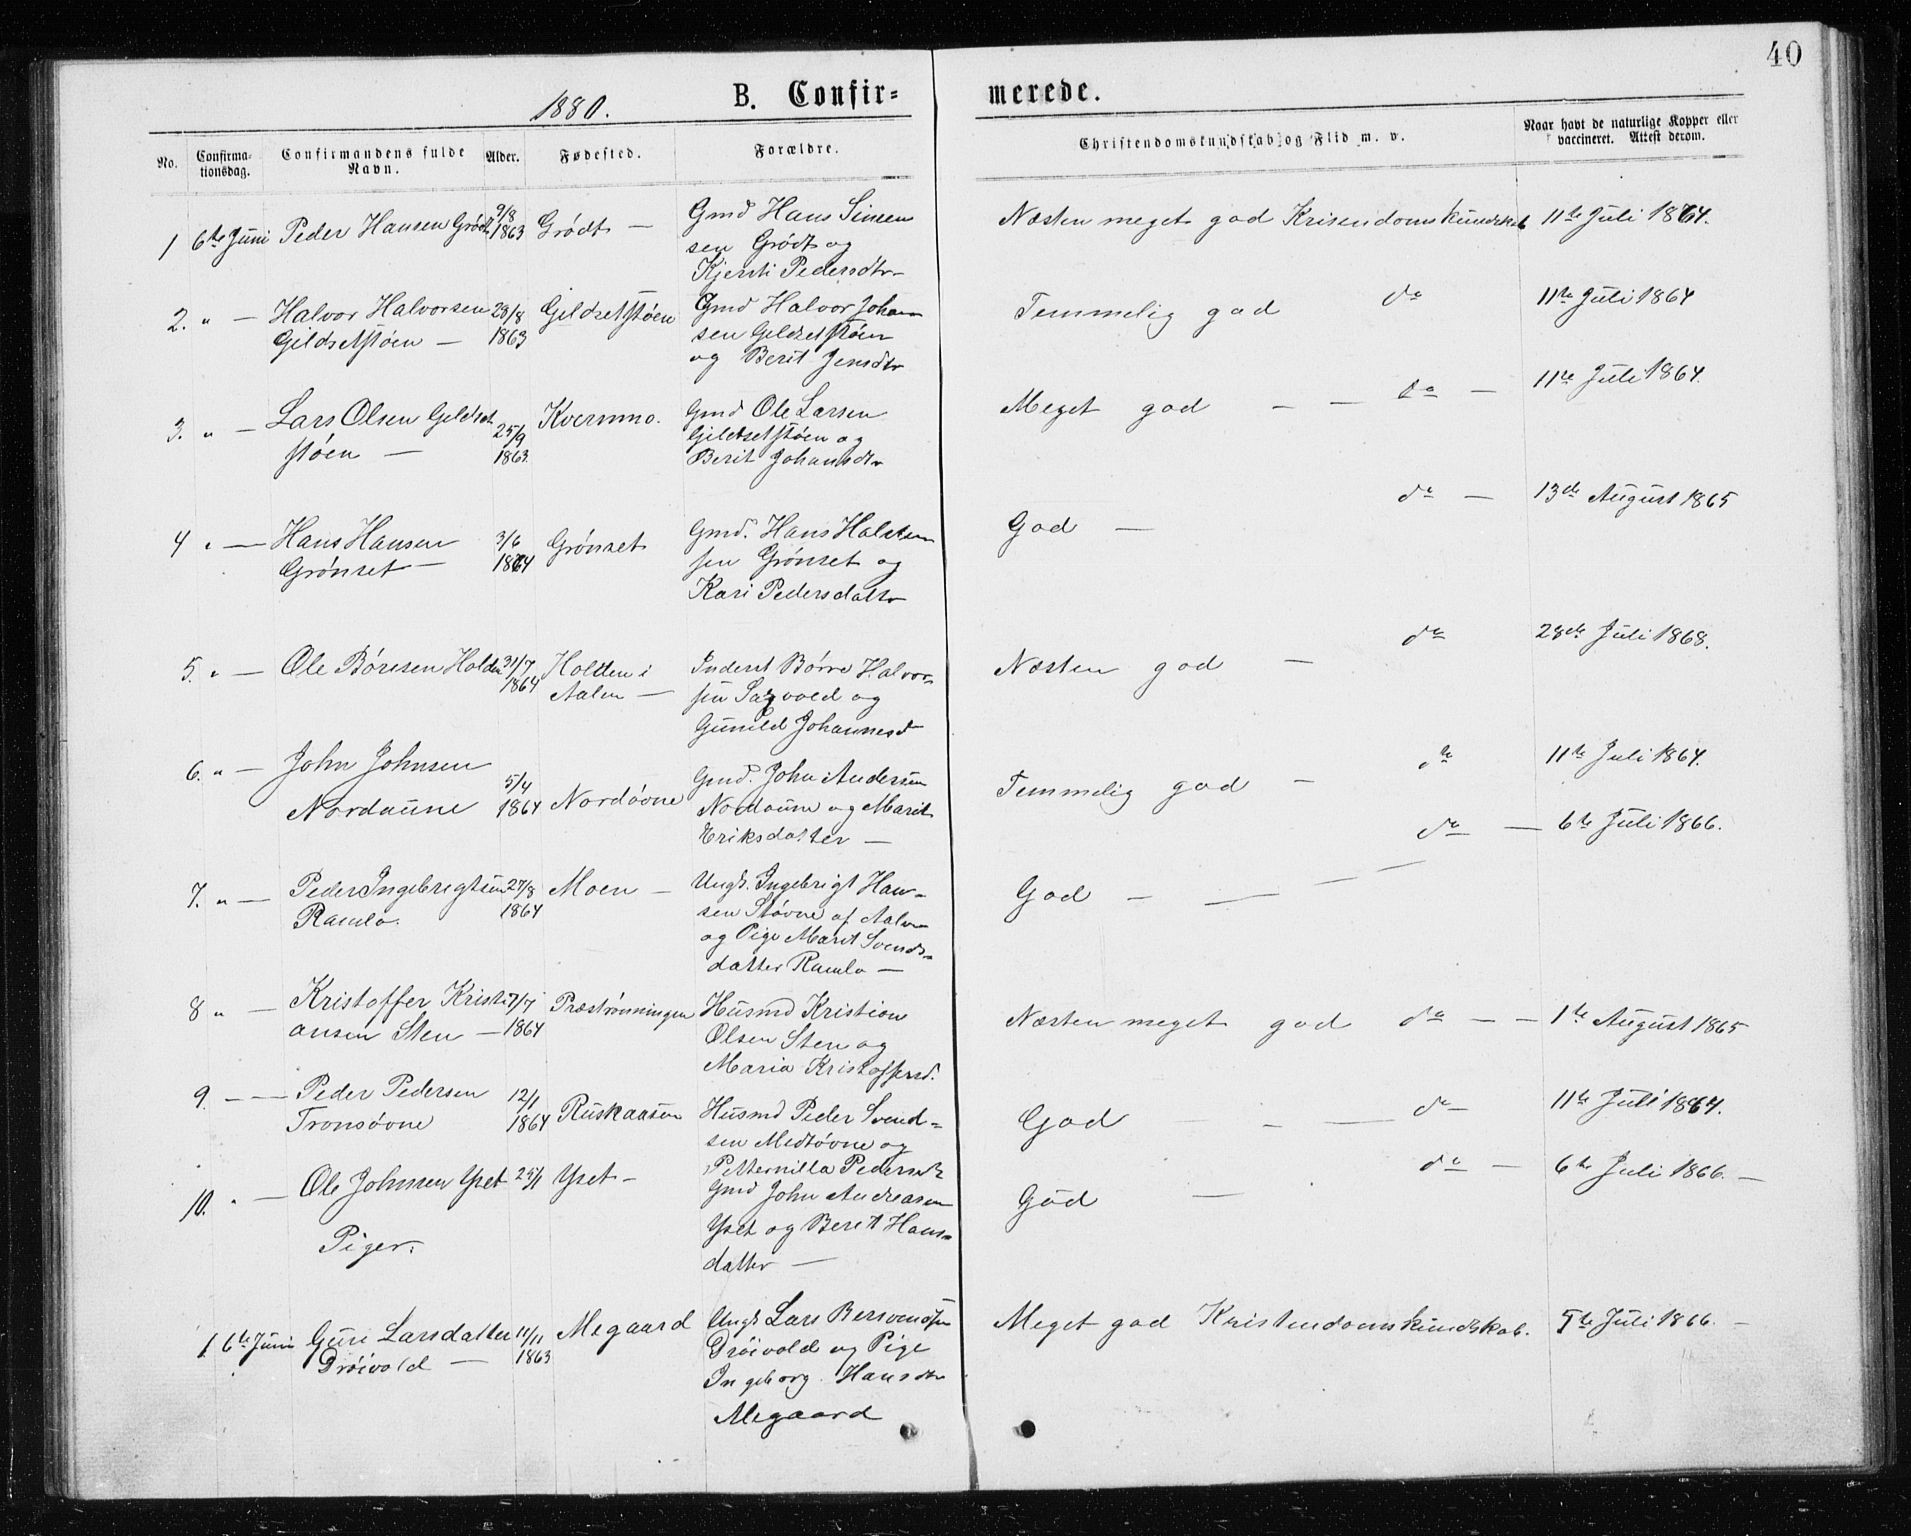 40
1880.
B. Confirmerede.
No.
Confirmationsdag.
Confirmandens fulde Navn.
Alder.
Fødested.
Forældre.
Christendomskundskab og Flid m. v.
Naar havt de naturlige Kopper eller vaccineret. Attest derom.
1 6te Juni Peder Hansen Grødt 9/8 Grødt — Gmd Hans Simen Næsten meget god Krisendomskundskab 11te Juli 1864.
1863 sen Grødt og
Kjersti Pedersdtr
2. " — Halvor Halvorsen 23/8 Gildsetstøen Gmd Halvor Johan Temmelig god do 11te Juli 1864
Gildsetstøen — 1863 sen Gildsetstøen
og Berit Jensdtr
3. " — Lars Olsen Gildset 25/9 Kvernmo. Gmd Ole Larsen Meget god — — do — 11te Juli 1864.
støen — 1863. Gildsetstøen og
Berit Johansdtr
4 " — Hans Hansen 3/6 Grønset Gmd. Hans Halsten God — do — 13de August 1865
Grønset — 1864 sen Grønset og
Kari Pedersdatter
5. " — Ole Børesen Holden 31/7 Holden i Inderst Børre Halvor- Næsten god — do 28de Juli 1868.
1864 Aalen — sen Sagvold og
Gunild Johannesd
6. " — John Johnsen 5/4 Gmd. John Andersen Temmelig god — do 11te Juli 1864.
Nordaune 1864 Nordøvne Nordaune og Marit
Eriksdatter —
7. " — Peder Ingebrigtsen 27/8 Moen — Ungk. Ingebrigt Han- God — — — — do — 6te Juli 1866.
Ramlo. 1864 sen Støvne af Aalen
og Pige Marit Svends-
datter Ramlo —
8 " — Kristoffer Kristi 7/7 Præstrønningen Husmd Kristian Næsten meget god do — — 1te August 1865
ansen Sten — 1864 Olsen Sten og
Maria Kristoffersd.
9. — — Peder Pedersen 12/1 Ruskaasen Husmd Peder Svend- God — — — do — 11te Juli 1864.
Tronsøvne 1864 sen Medtøvne og
Petternilla Pedersdtr
10. " — Ole Johnsen Yset 25/1 Yset — Gmd John Andreasen God — do — 6te Juli 1866. —
Yset og Berit Hans-
datter —
Piger.
1 6te Juni Guri Larsdatter 11/11 Megaard Ungk Lars Bersvendsen Meget god Kristendomskundskab. 5te Juli 1866. —
Drøivold — 1863 Drøivold og Pige
Ingeborg Hansdtr
Megaard